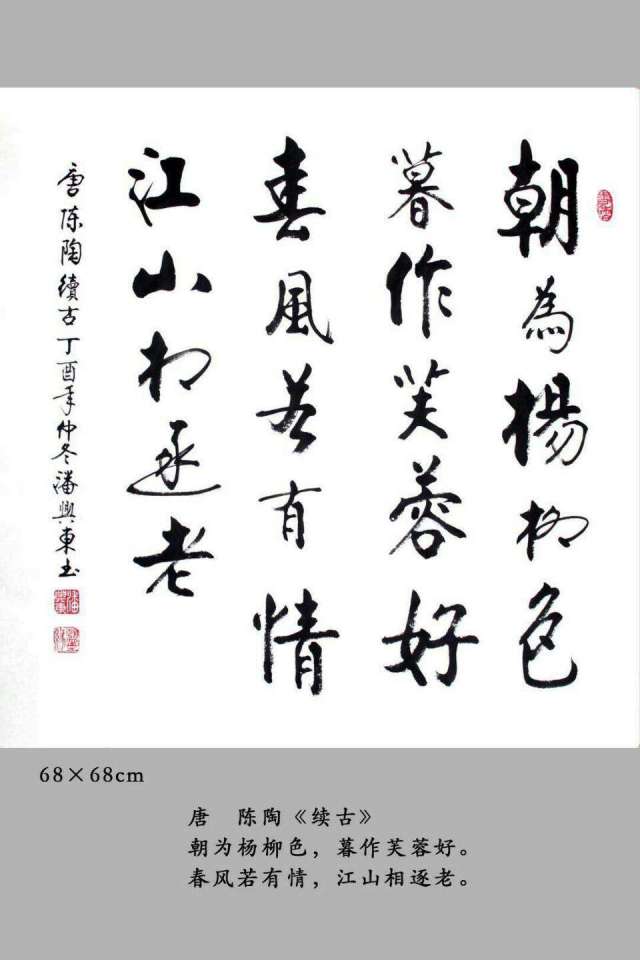 朝為楊柳色
暮作芙蓉好
春風若有情
江山相逐老
唐陈陶續古丁酉年仲冬潘興東书
68×68cm
唐　陈陶《续古》
朝为杨柳色，暮作芙蓉好。
春风若有情，江山相逐老。